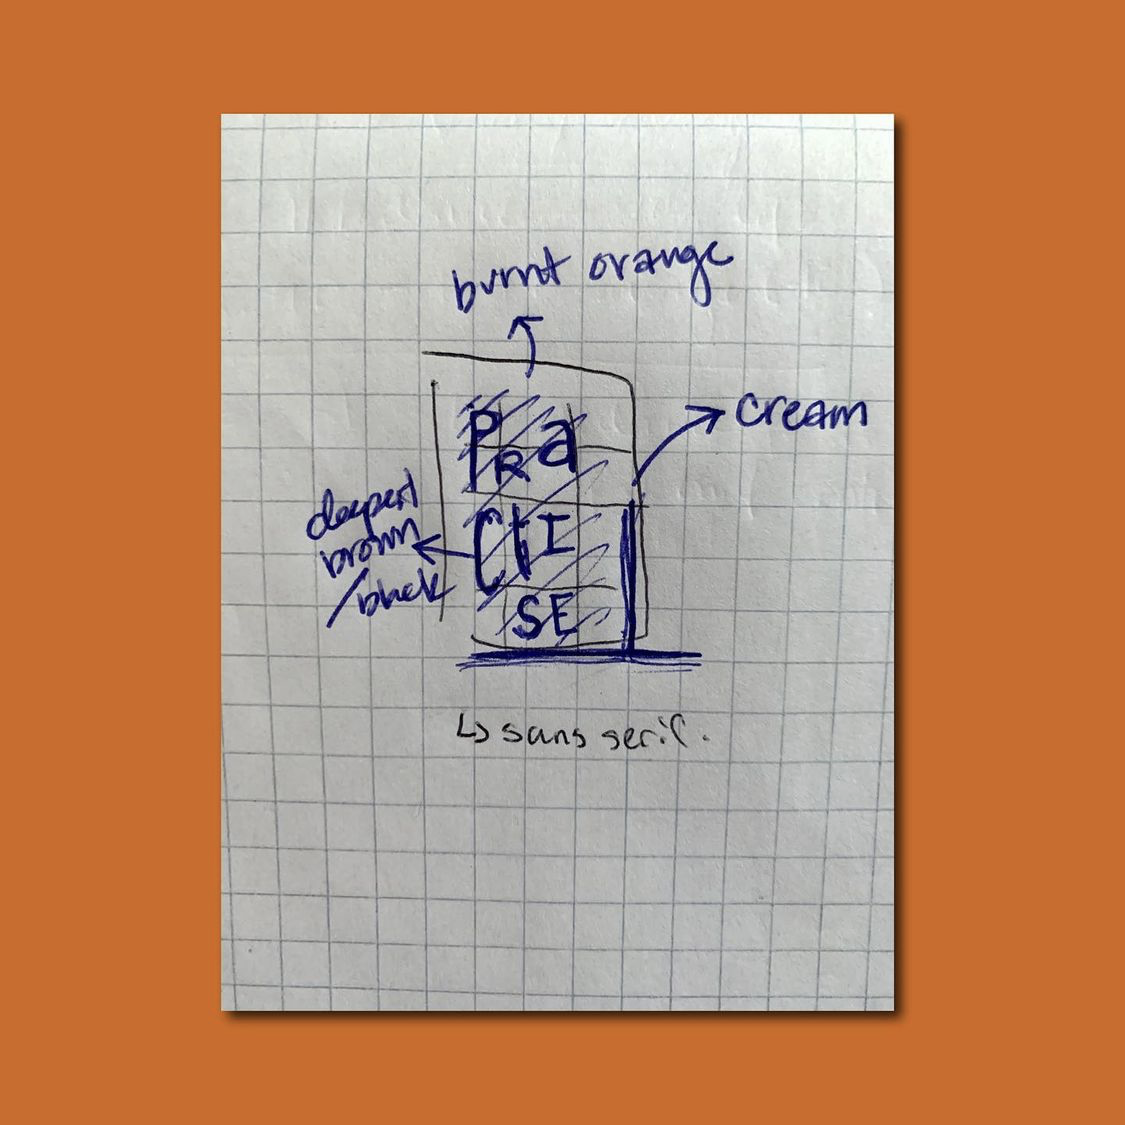 burnt orange
cream
PRa
CtI
SE
deepest
brown
/black
↳ sans serif.